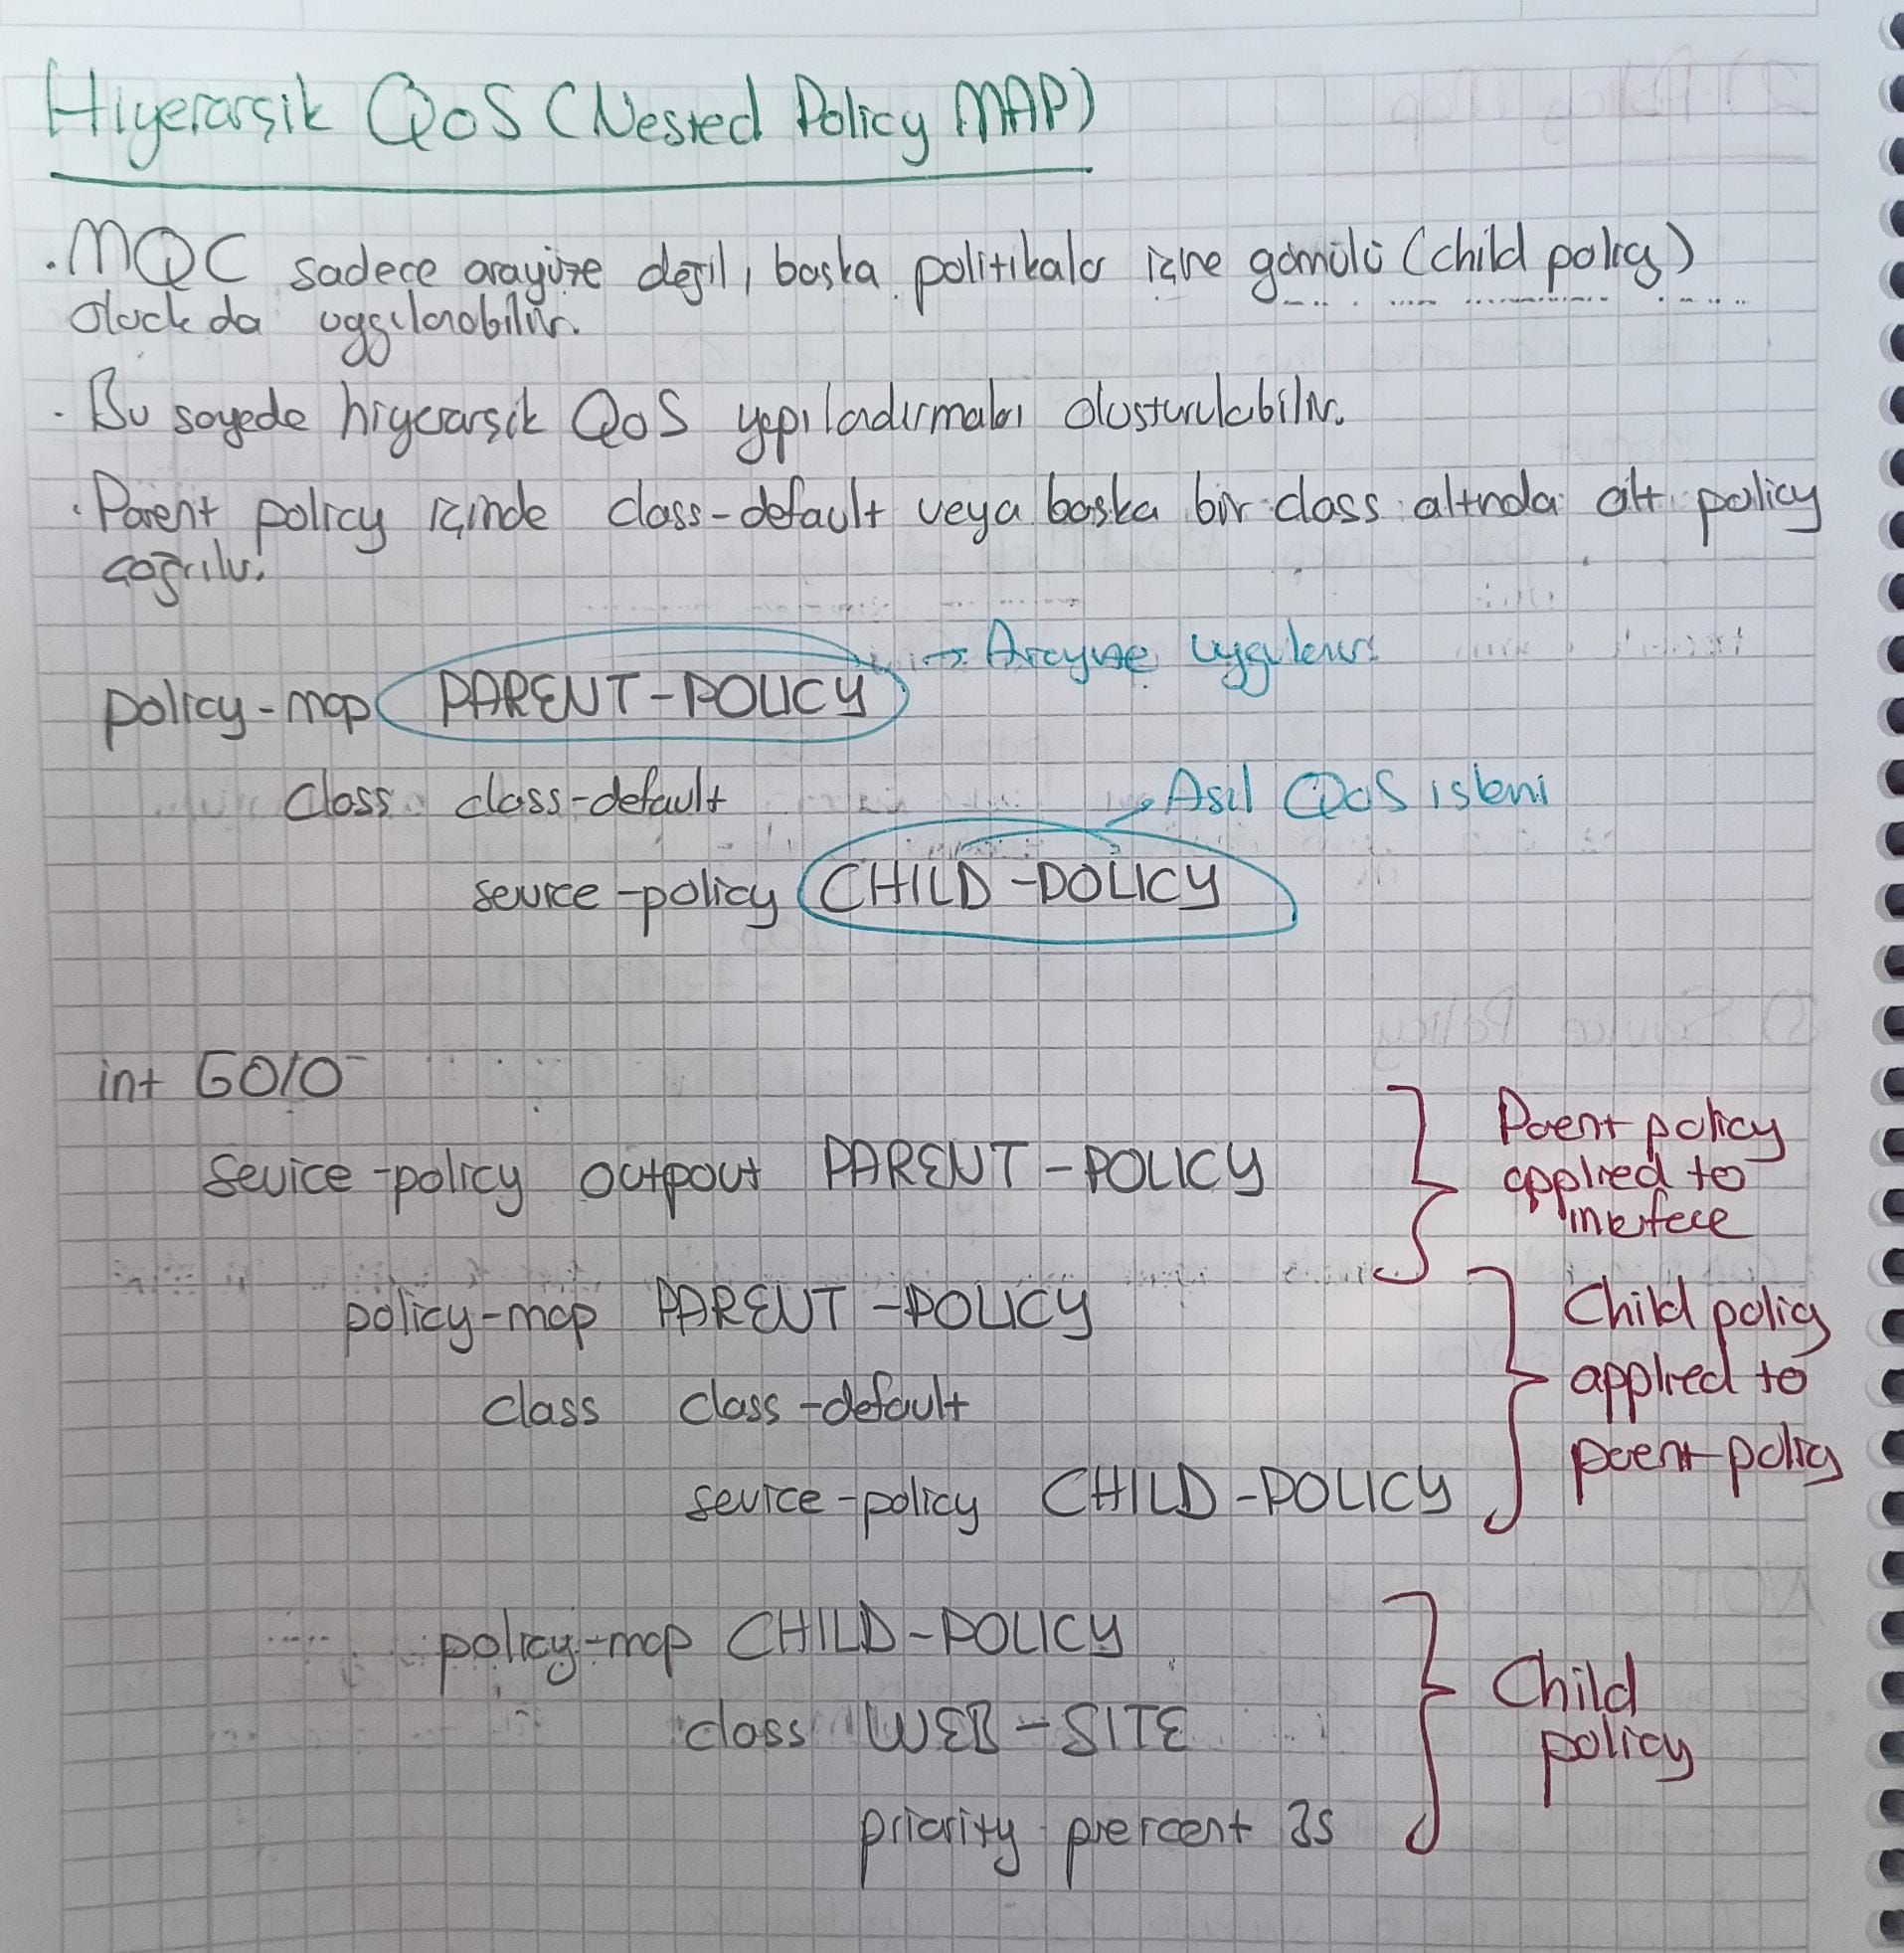 Hiyerarşik QoS (Nested Policy MAP)
. MQC sadece arayüze değil, baska politikalar içine gömülü (child policy)
olarak da uygulanabilir.
. Bu sayede hiyerarşik QoS yapılandırmaları olusturulabilir.
. Parent policy içinde class-default veya baska bir class altında alt policy
çağrılır.
policy-map PARENT-POLICY → Arayüze uygulanır.
class class-default
→ Asil QoS islemi
service-policy CHILD-POLICY
int G0/0
service-policy outpout PARENT-POLICY
Parent policy
applied to
interface
policy-map PARENT-POLICY
class class-default
service-policy CHILD-POLICY
Child policy
applied to
parent policy
policy-map CHILD-POLICY
class WEB-SITE
priority percent 35
Child
policy